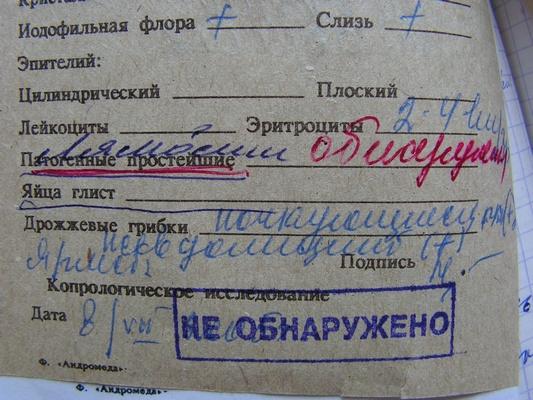 Иодофильная флора + Слизь +
Эпителий:
Цилиндрический Плоский
Лейкоциты Эритроциты 2-4
Патогенные простейшие Лямблии обнаружены
Яйца глист
Дрожжевые грибки почкующиеся
псевдомицелий (+)
Подпись
Копрологическое исследование
Дата 8/VII
НЕ ОБНАРУЖЕНО
Ф. «Андромеда»
Ф. «Андромеда»